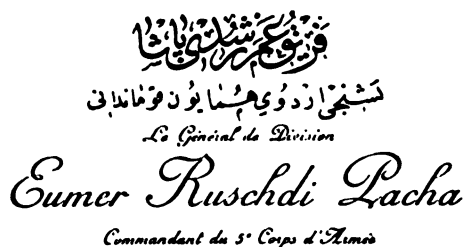 فريق عمر رشدى پاشا
بشنجى اردوى همايون قوماندانى
Le Général de Division
Eumer Ruschdi Pacha
Commandant du 5e Corps d'Armée